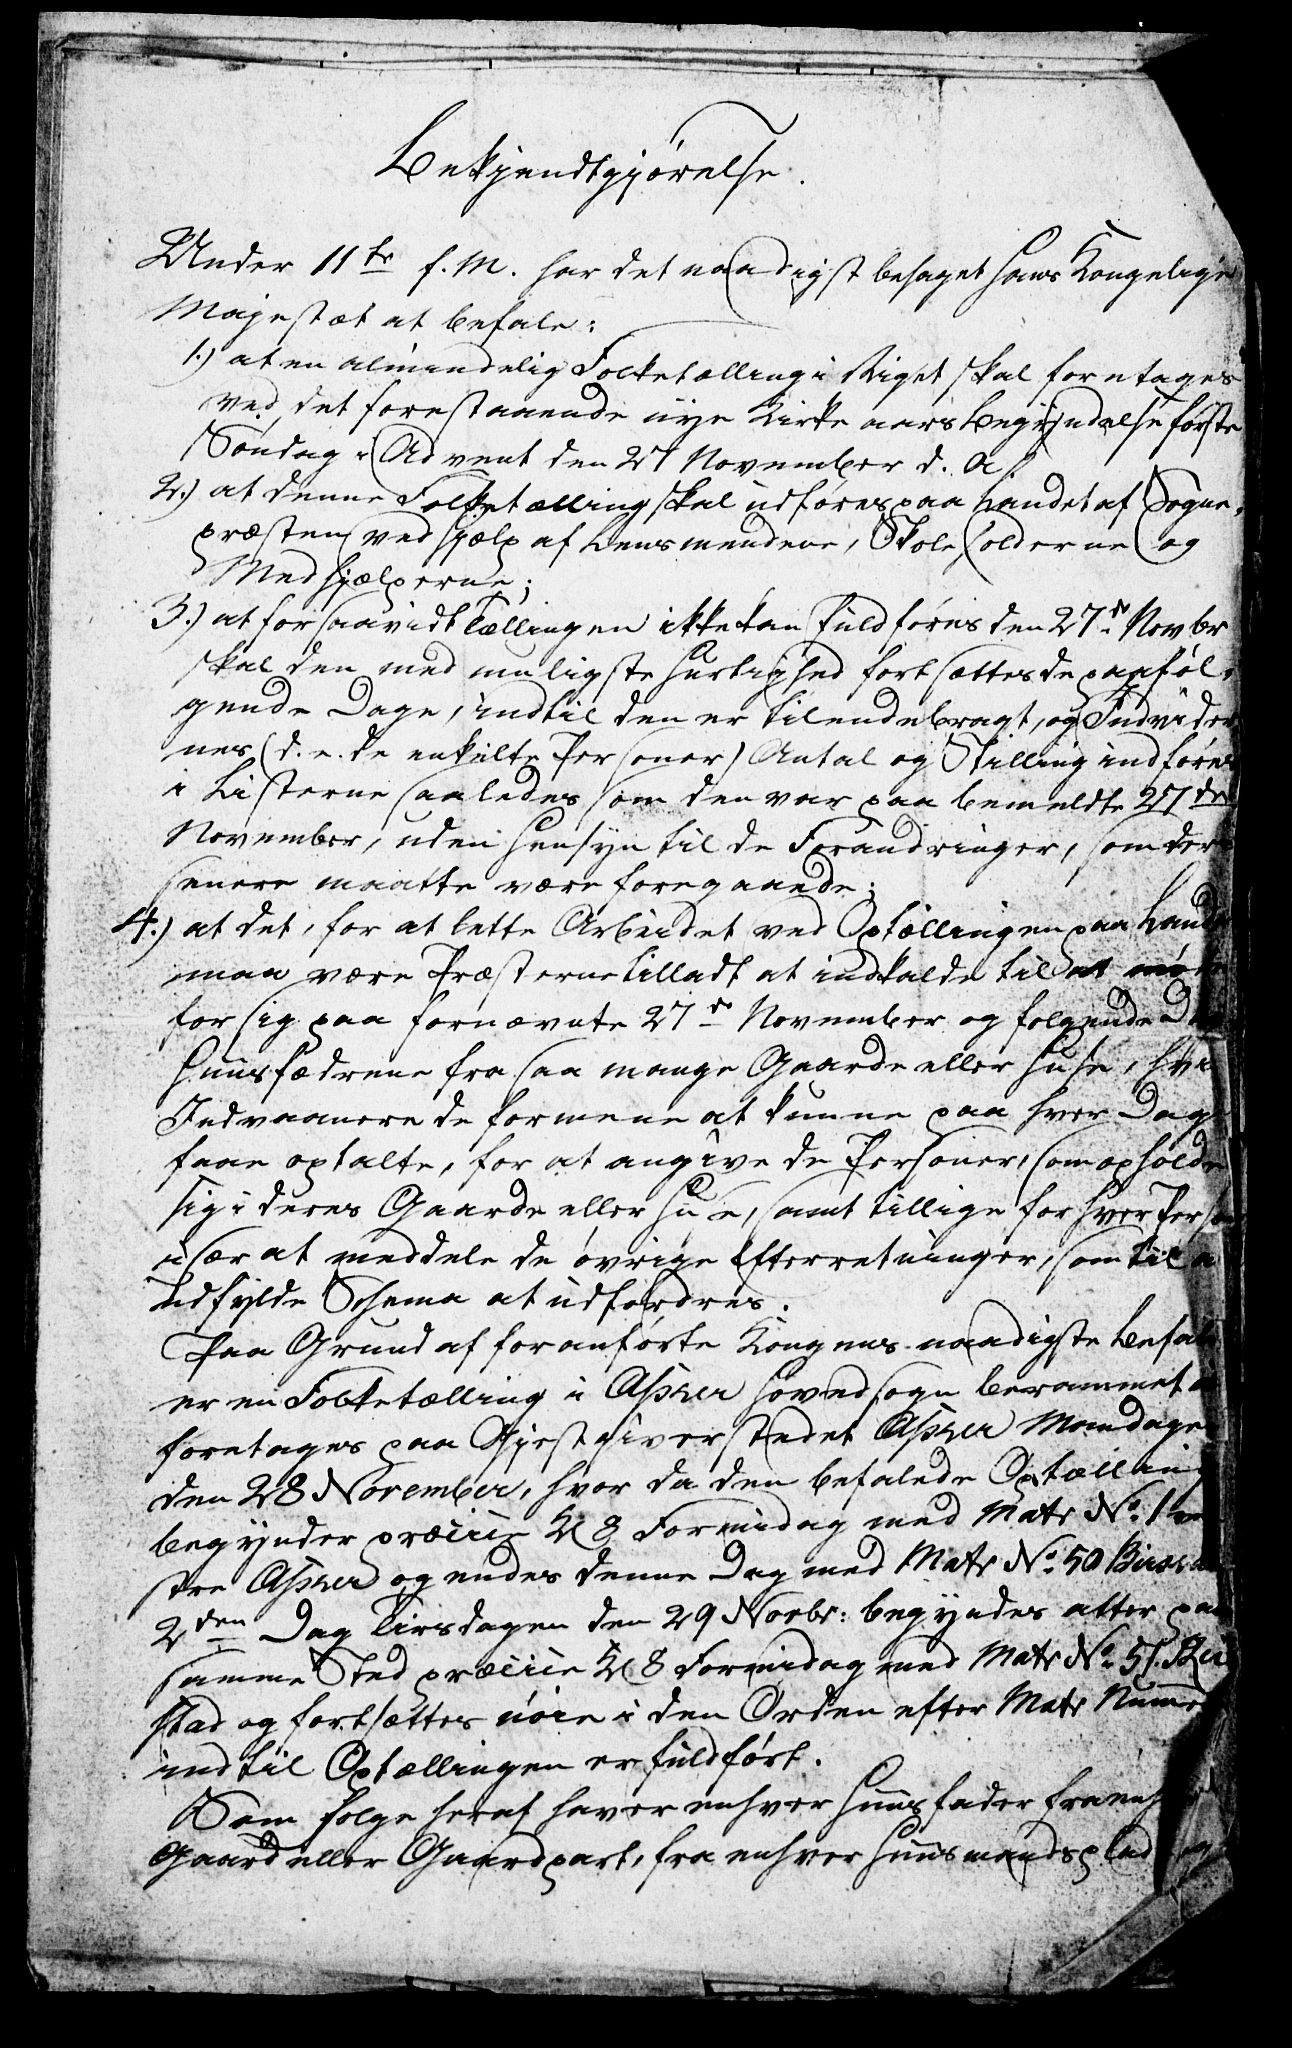 Bekjendtgjörelse.
Under 11te f. M. har det naadigst behaget Hans Kongelige
Majestæt at befale:
1.) at en almindelig Folketælling i Riget skal foretages
ved det forestaaende nye Kirke aars Begÿndelse förste
Søndag i Advent den 27 November d. A.
2.) at denne Folketælling skal udföres paa Landet af Sogne-
præsten ved Hjælp af Lensmændene, Skoleholderne og
Medhjælperne;
3.) at forsaavidt Tællingen ikke kan fuldföres den 27de Novbr
skal den med muligste Hurtighed fortsættes de paaföl-
gende Dage, indtil den er tilendebragt, og Individer
nes (d. e. de enkelte Personer) Antal og Stilling indföres
i Listerne saaledes som den var paa bemeldte 27de
November, uden Hensyn til de Forandringer, som der
senere maatte være foregaaede;
4.) at det, for at lette Arbeidet ved Optællingen paa Land
maa være Præsterne tilladt at indkalde til at möde
for sig paa fornævnte 27de November og folgende D
Huusfædrene fra saa mange Gaarde eller Huse, hvi
Indvaanere de formene at kunne paa hver Dag
faae optalte, for at angive de Personer, som opholde
sig i deres Gaarde eller Huse, samt tillige for hver Perso
især at meddele de övrige Efterretninger, som til a
udfylde Schema at udfordres.
Paa Grund af foranförte Kongens naadigste Befal
er en Folketælling i Asker Hovedsogn berammet a
foretages paa Gjestgiverstedet Asker Mandagen
den 28 November, hvor da den befalede Optælling
begÿnder præcise Kl 8 Formidag med Matr No. 1
stre Asker og endes denne Dag med Matr No. 50
2den Dag Tirsdagen den 29 Novbr: begyndes atter paa
samme Sted præcise Kl 8 Formidag med Matr No. 51.
stad og fortsættes nöie i den Orden efter Matr Nume
indtil Optællingen er fuldfört.
Som Fölge heraf haver enhver Huusfader fra enh
Gaard eller Gaardpart, fra enhver Huusmandsplad